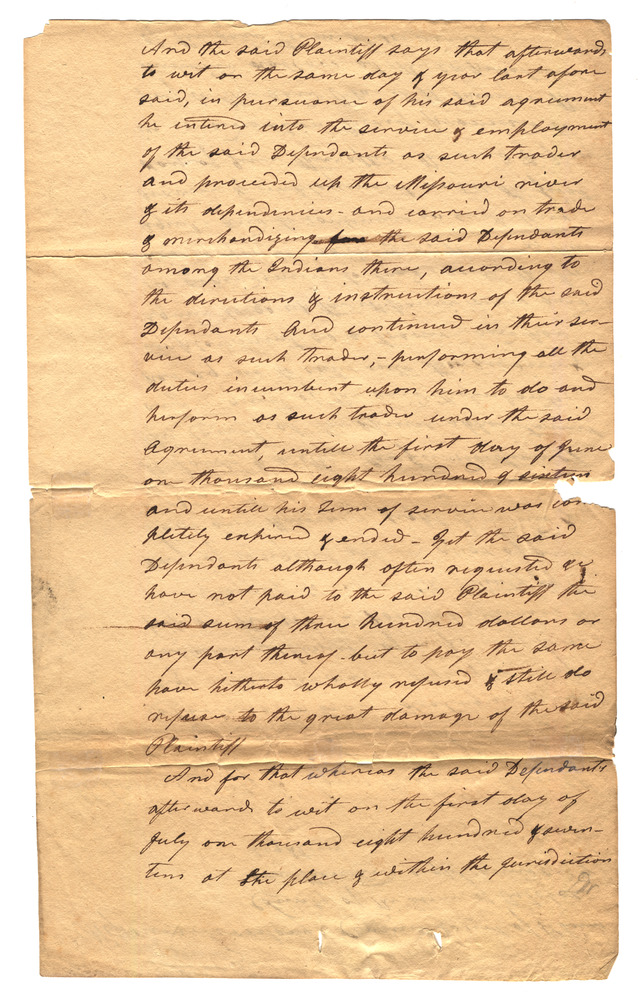 And the said Plaintiff says that afterwards
to wit on the same day & year last afore
said, in pursuance of his said agreement
he intered into the service & employment
of the said Defendants as such trader
and proceeded up the Missouri river
& its dependencies - and carried on trade
& merchandizing for the said Defendants
among the Indians there, according to
the directions & instructions of the said
Defendants And continued in their ser-
vice as such trader, - performing all the
duties incumbent upon him to do and
perform as such trader under the said
Agreement, untill the first day of June
one thousand eight hundred & sixteen
and untill his Term of service was com
pletely expired & ended - Yet the said
Defendants although often requested &c
have not paid to the said Plaintiff the
said sum of three hundred dollars or
any part thereof but to pay the same
have hitherto wholly refused & still do
refuse to the great damage of the said
Plaintiff
And for that whereas the said Defendants
afterwards to wit on the first day of
July one thousand eight hundred & seven-
teen at the place & within the jurisdiction